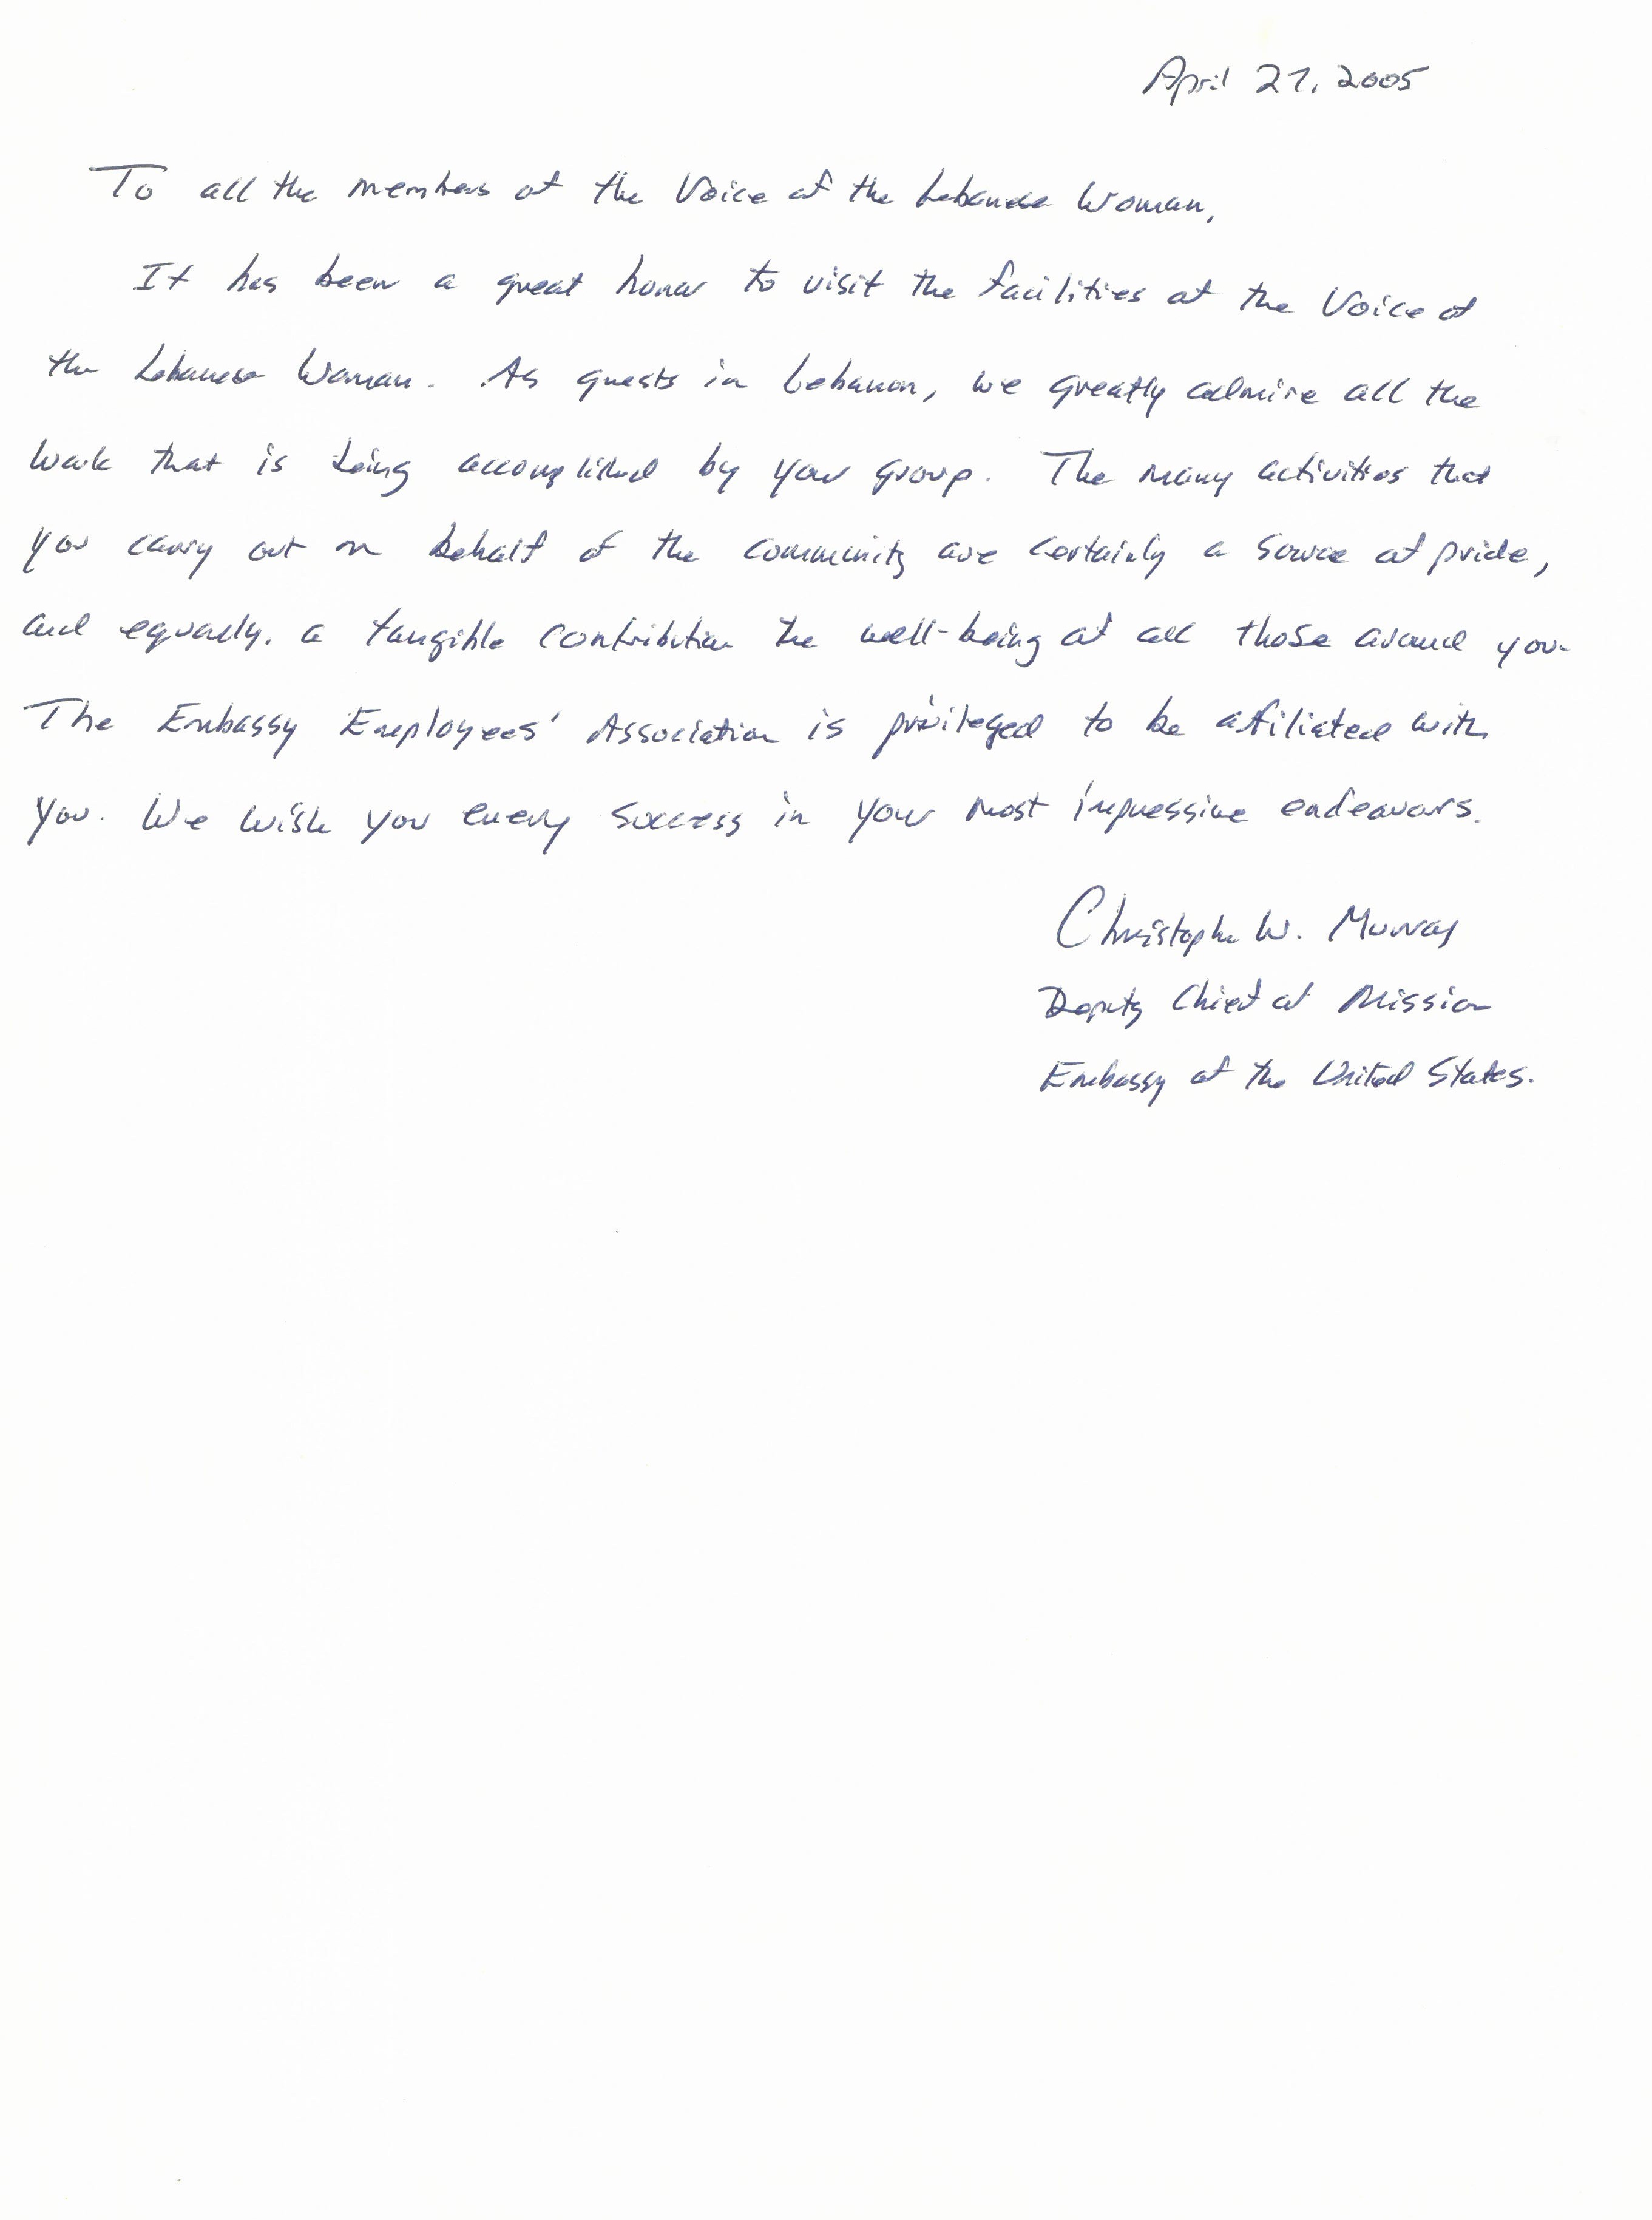 April 27, 2005
To all the members of the Voice of the Lebanese Woman,
It has been a great honor to visit the facilities of the Voice of
the Lebanese Woman. As guests in Lebanon, we greatly admire all the
work that is being accomplished by your group. The many activities that
you carry out on behalf of the community are certainly a source of pride,
and equally, a tangible contribution the well-being of all those around you.
The Embassy Employees' Association is privileged to be affiliated with
you. We wish you every success in your most impressive endeavors.
Christopher W. Murray
Deputy Chief of Mission
Embassy of the United States.